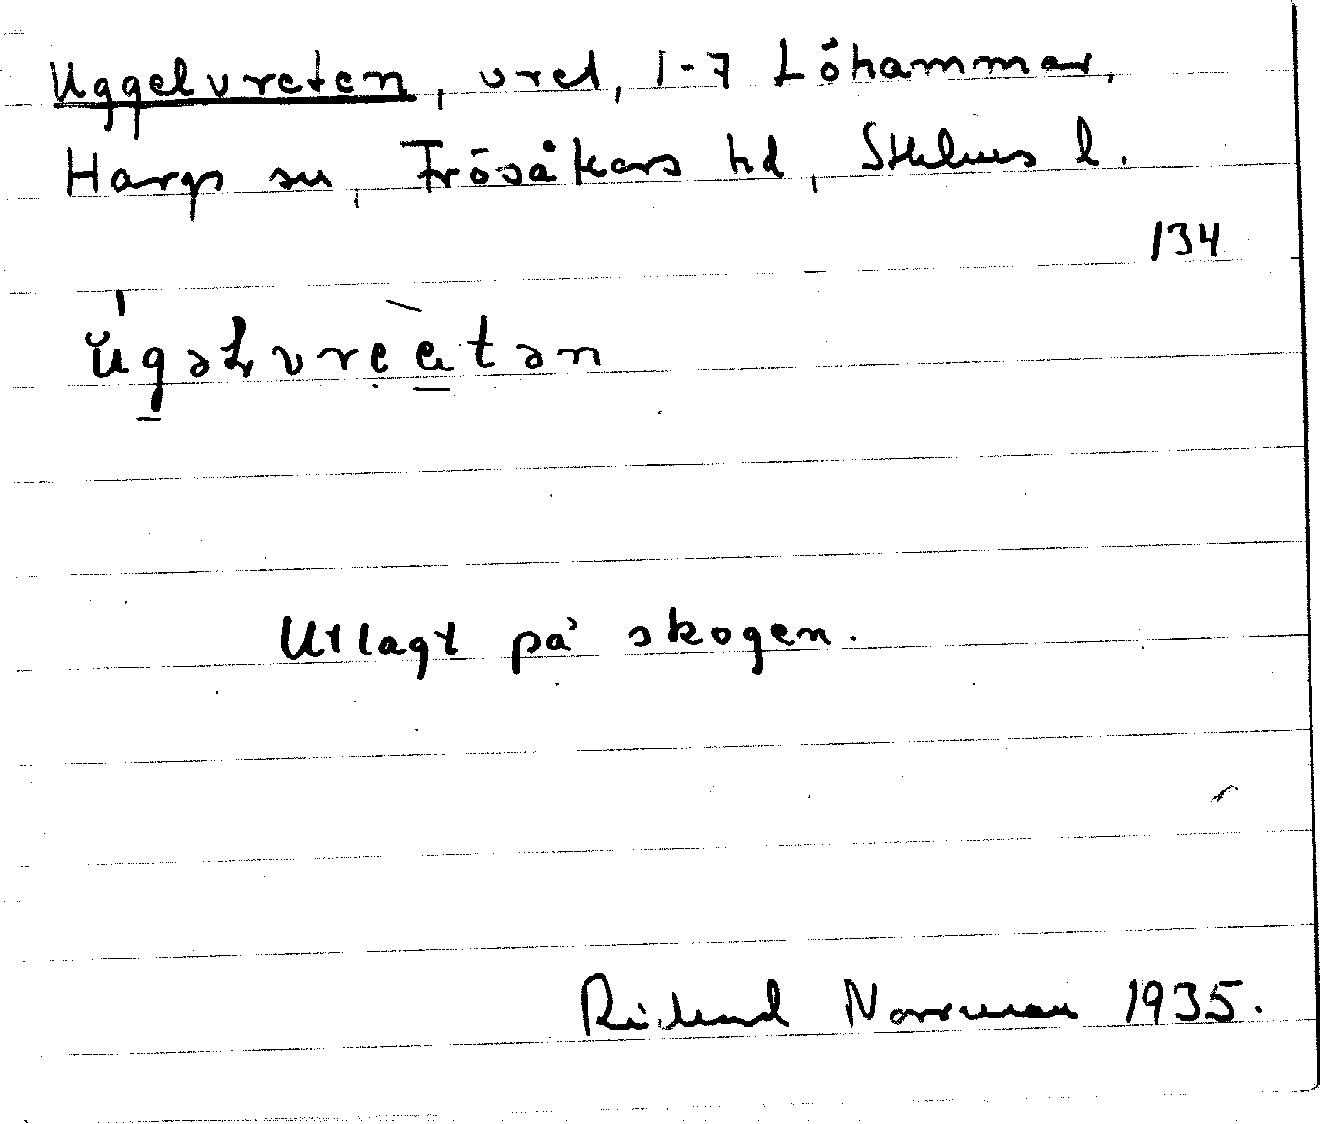 Uggelvreten, vret, 1-7 Löhammar,
Hargs sn, Frösåkers hd, Sthlms l.
134
ŭ́g̠əƚvrẹèt̠ən
Utlagt på skogen.
Richard Norrman 1935.